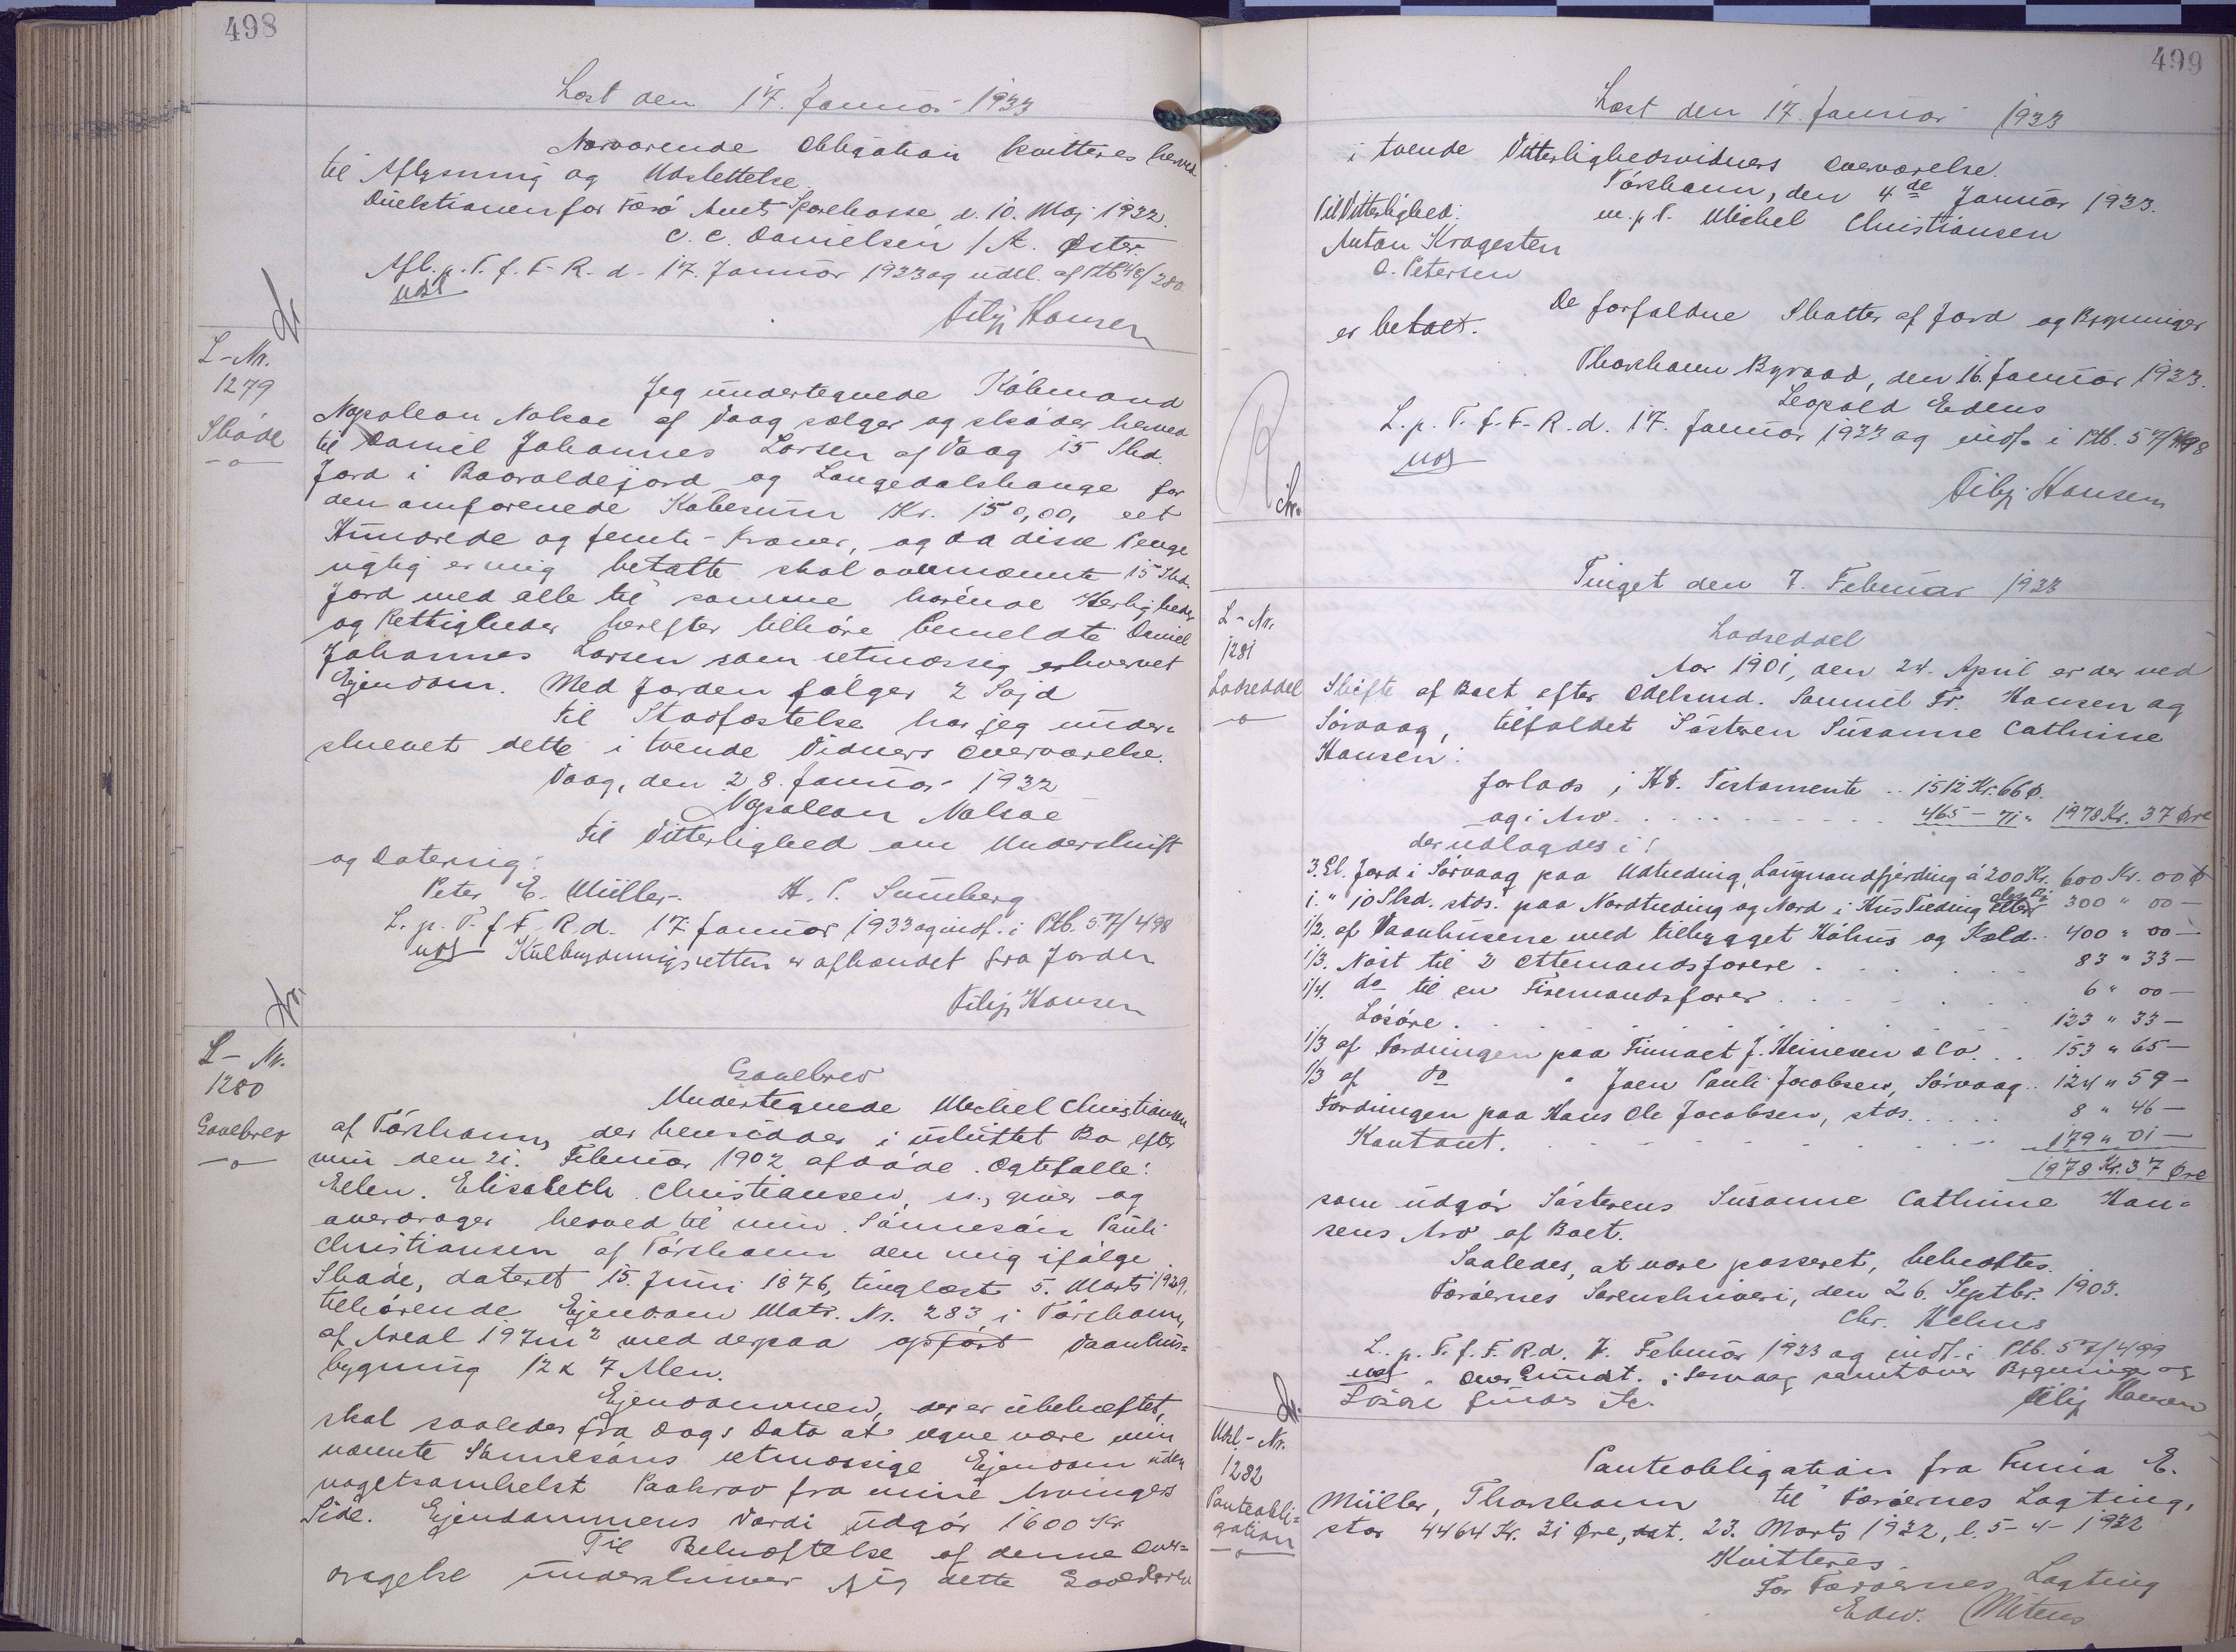 498
Læst den 17. Januar 1933
Nærværende Obligation kvitteres herved
til Aflysning og Udslettelse.
Direktionen for Færø Amts Sparekasse, d. 10. Maj 1932.
C. C. Danielsen / A. Øster.
Afl. p. T. f. F. R. d. 17. Januar 1933 og udsl. af Ptb 48/280
Filip Hansen
L-Nr.
1279
Skøde
Jeg undertegnede Købmand
Napoleon Nolsøe af Vaag sælger og skøder herved
til Daniel Johannes Larsen af Vaag 15 Skd.
Jord i Langedalshauge for
den omforenede Købesum Kr. 150,00, eet
Hundrede og femti-Kroner, og da disse Penge
rigtig er mig betalte skal ovennævnte 15 Skd.
Jord med alle til samme hørende Herligheder
og Rettigheder herefter tilhøre bemeldte Daniel
Johannes Larsen som retmæssig erhvervet
Ejendom. Med Jorden følger 2 Sojd
Til Stadfæstelse har jeg under-
skrevet dette i tvende Vidners Overværelse.
Vaag, den 28. Januar 1932
Napoleon Nolsøe
Til Vitterlighed om Underskrift
og Datering:
Peter E. Müller. H. P. Sumberg
L. p. T. f. F. R. d. 17. Januar 1933 og indf. i Ptb. 57/498
Kulbrydningsretten er afhændet fra Jorden
Filip Hansen
L- Nr.
1280
Gavebrev
Gavebrev
Undertegnede Michel Christiansen
af Tórshavn, der hensidder i uskiftet Bo efter
min den 21. Februar 1902 afdøde Ægtefælle:
Ellen Elisabeth Christiansen, giver og
overdrager herved til min Sønnesøn Pauli
Christiansen af Tórshavn den mig ifølge
Skøde, dateret 15. Juni 1876, tinglæst 5. Marts 1929,
tilhørende Ejendom Matr. Nr. 283 i Tórshavn,
af Areal 197m² med derpaa opført Vaanhus-
bygning 12 x 7 Alen.
Ejendommen, der er ubehæftet,
skal saaledes fra Dags Dato at regne være min
nævnte Sønnesøns retmæssige Ejendom uden
nogetsomhelst Paakrav fra mine Arvingers
Side. Ejendommens Værdi udgør 1600 Kr.
Til Bekræftelse af denne Over-
dragelse underskriver jeg dette Gavebrev
499
Læst den 17. Januar 1933
i tvende Vitterlighedsvidners Overværelse.
Tórshavn, den 4de Januar 1933.
Til Vitterlighed: m. p. P. Michel Christiansen
Anton Kragesten
O. Petersen
De forfaldne Skatter af Jord og Bygninger
er betalt.
Thorshavn Byraad, den 16. Januar 1933.
Leopold Edens
L. p. T. f. F. R. d. 17. Januar 1933 og indf. i Ptb. 57/498
Filip Hansen
Tinget den 7. Februar 1933
L- Nr.
1281
Lodseddel
Lodseddel
Aar 1901, den 24. April er der ved
Skifte af Boet efter Odelsmd. Samuel Fr. Hansen og
Sørvaag, tilfaldet Søsteren Susanne Cathrine
Hansen:
forlods i Testamente .. 1512 Kr. 66 Ø.
og i Arv . . . 465 - 71 " 1978 Kr. 37 Øre
der udlagdes i:
3. Gl. Jord i Sørvaag paa Udtreding, Langmandfjerding á 200 Kr. 600 Kr. 00 Ø
1. " 10 Skd. stds. paa Nordtreding og Nord i Hus Treding 300 " 00 -
1/2. af Vaanhusene med tilbygget Kóhus og Kæld.. 400 " 00 -
1/3. Nøst til 2 Ottemandsfarere . . . 83 " 33 -
1/4. do til en Firemandsfarer . . . 6 " 00 -
Løsøre . . . 123 " 33 -
1/3 af Fordringen paa Firmaet J. Heinesen & Co. . . 153 " 65 -
1/3 af do " Joen Pauli Jacobsen, Sørvaag.. 124 " 59 -
Fordringen paa Hans Ole Jacobsen, stds. . . . 8 " 46 -
Kontant. . . . 179 " 01 -
1978 Kr. 37 Øre
som udgør Søsterens Susanne Cathrine Han-
sens Arv af Boet.
Saaledes, at være passeret, bekræftes.
Færøernes Sorenskriveri, den 26. Septbr. 1903.
L. p. T. f. F. R. d. 7. Februar 1933 og indf. i Ptb. 57/499
i Sørvaag samt over Bygninger og
Løsøre
Filip Hansen
Udsl- Nr.
1282
Panteobli-
gation
Panteobligation fra E.
Müller, Thorshavn til Færøernes Lagting,
stor 4464 Kr. 31 Øre, dat. 23. Marts 1932, l. 5-4-1932
Kvitteres.
For Færøernes Lagting
Edw. Mitens